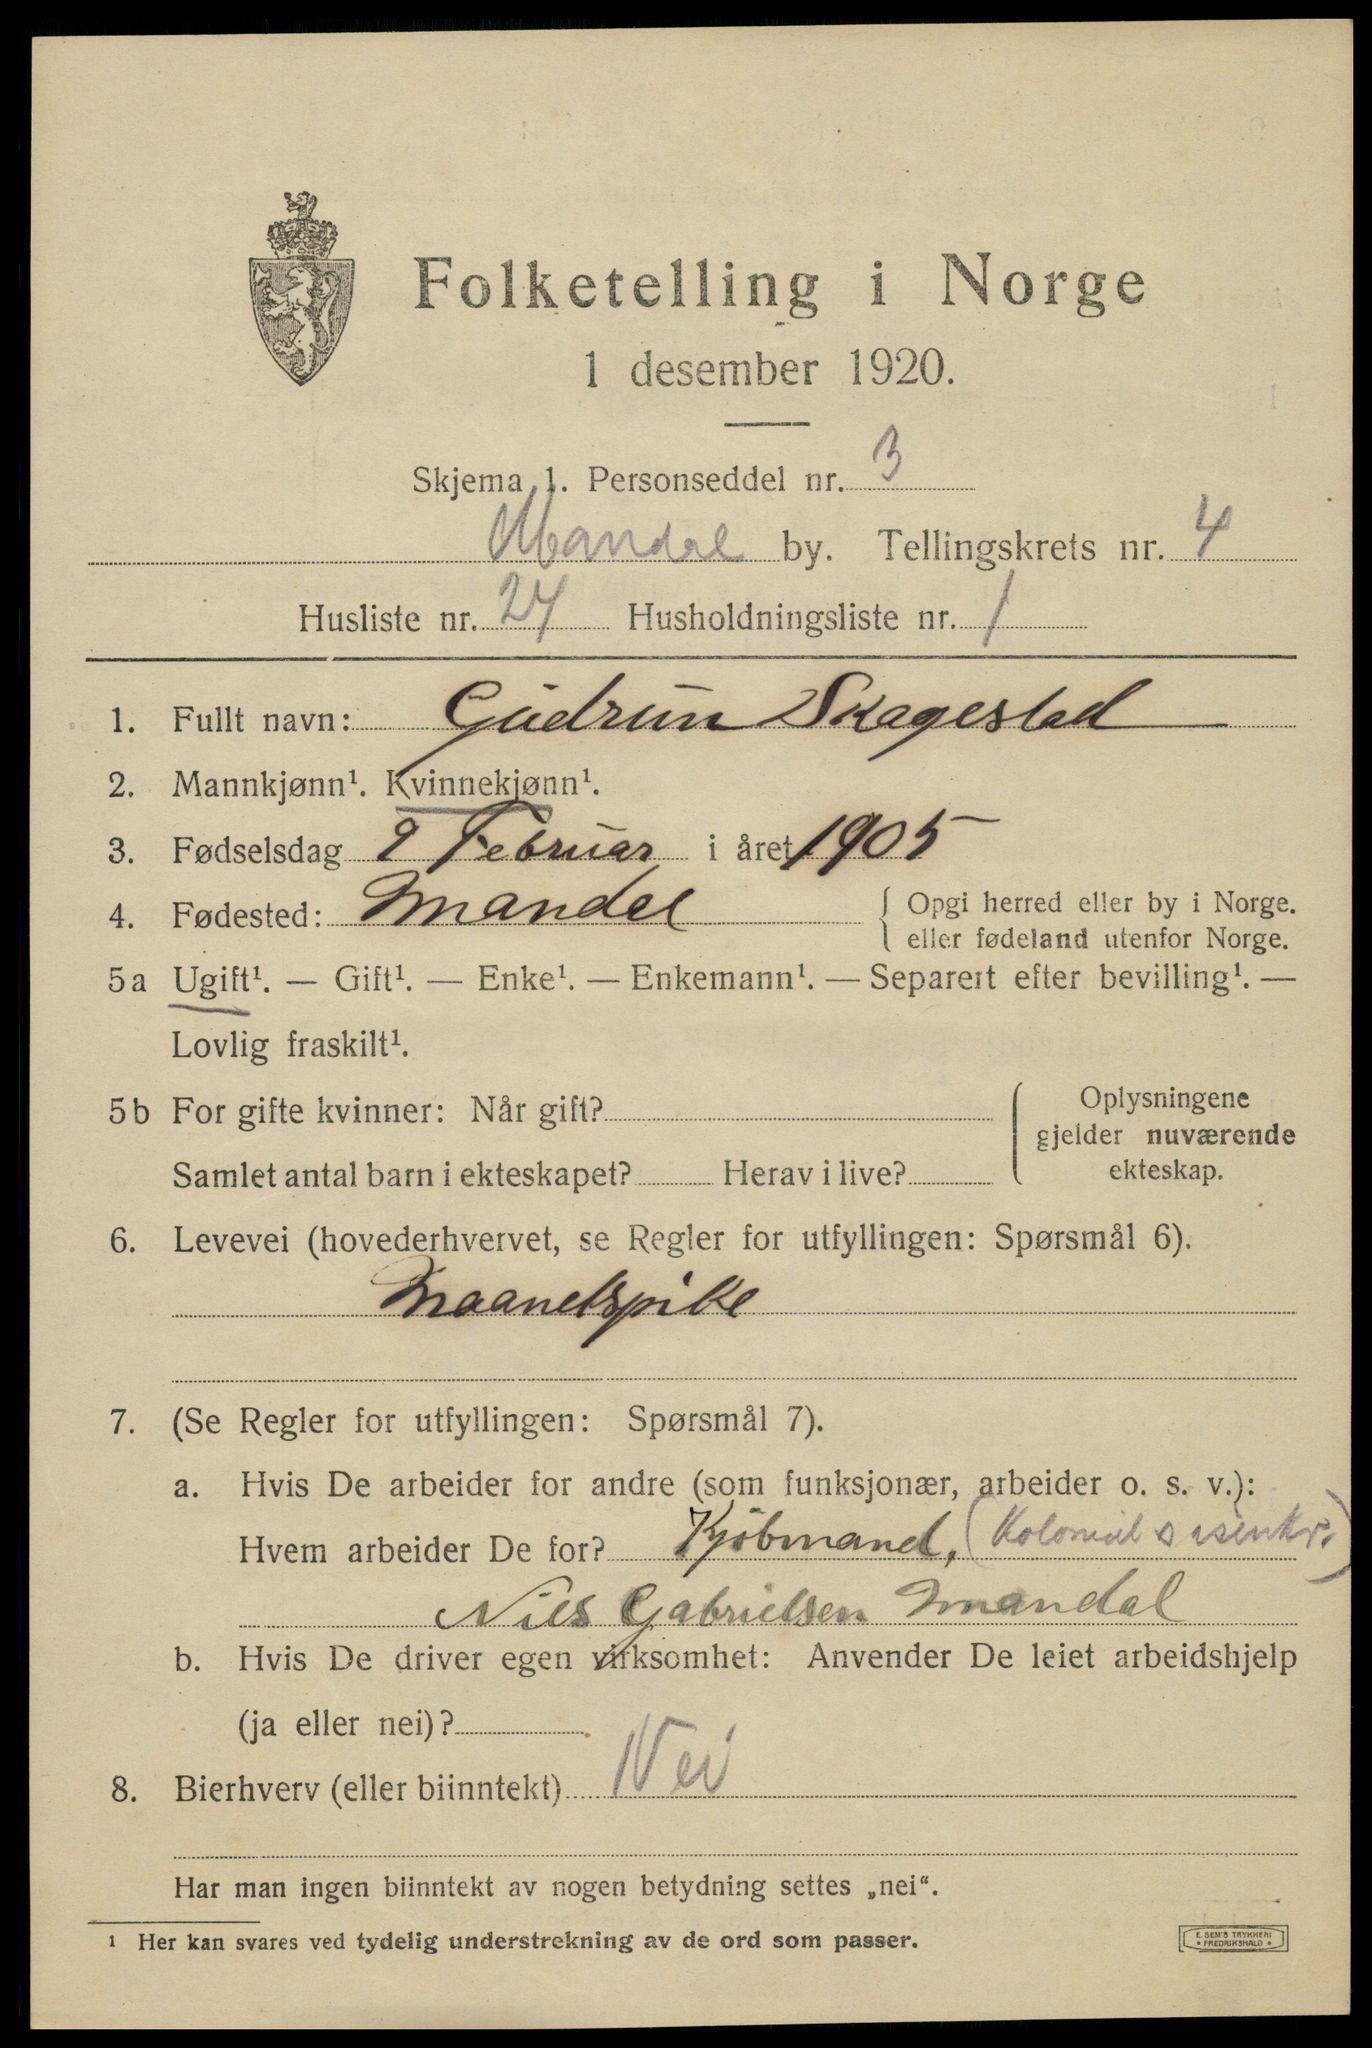 Folketelling i Norge
1 desember 1920.
Skjema 1. Personseddel nr. 3
Mandal by. Tellingskrets nr. 4
Husliste nr. 24 Husholdningsliste nr. 1
1. Fullt navn: Gudrun Skagestad
2. Mannkjønn¹. Kvinnekjønn¹.
3. Fødselsdag 9 Februar i året 1905
4. Fødested: Mandal { Opgi herred eller by i Norge.
eller fødeland utenfor Norge.
5a Ugift¹. — Gift¹. — Enke¹. — Enkemann¹. — Separert efter bevilling¹. —
Lovlig fraskilt¹.
5b For gifte kvinner: Når gift? Oplysningene
gjelder nuværende
Samlet antal barn i ekteskapet? Herav i live? ekteskap.
6. Levevei (hovederhvervet, se Regler for utfyllingen: Spørsmål 6).
Maanetspike
7. (Se Regler for utfyllingen: Spørsmål 7).
a. Hvis De arbeider for andre (som funksjonær, arbeider o. s. v.):
Hvem arbeider De for? Kjöbmand, (Kolonial
Nils Gabrielsen Mandal
b. Hvis De driver egen virksomhet: Anvender De leiet arbeidshjelp
(ja eller nei)?
8. Bierhverv (eller biinntekt) Nei
Har man ingen biinntekt av nogen betydning settes „nei“.
¹ Her kan svares ved tydelig understrekning av de ord som passer.
E. SEM'S TRYKKERI
• FREDRIKSHALD •